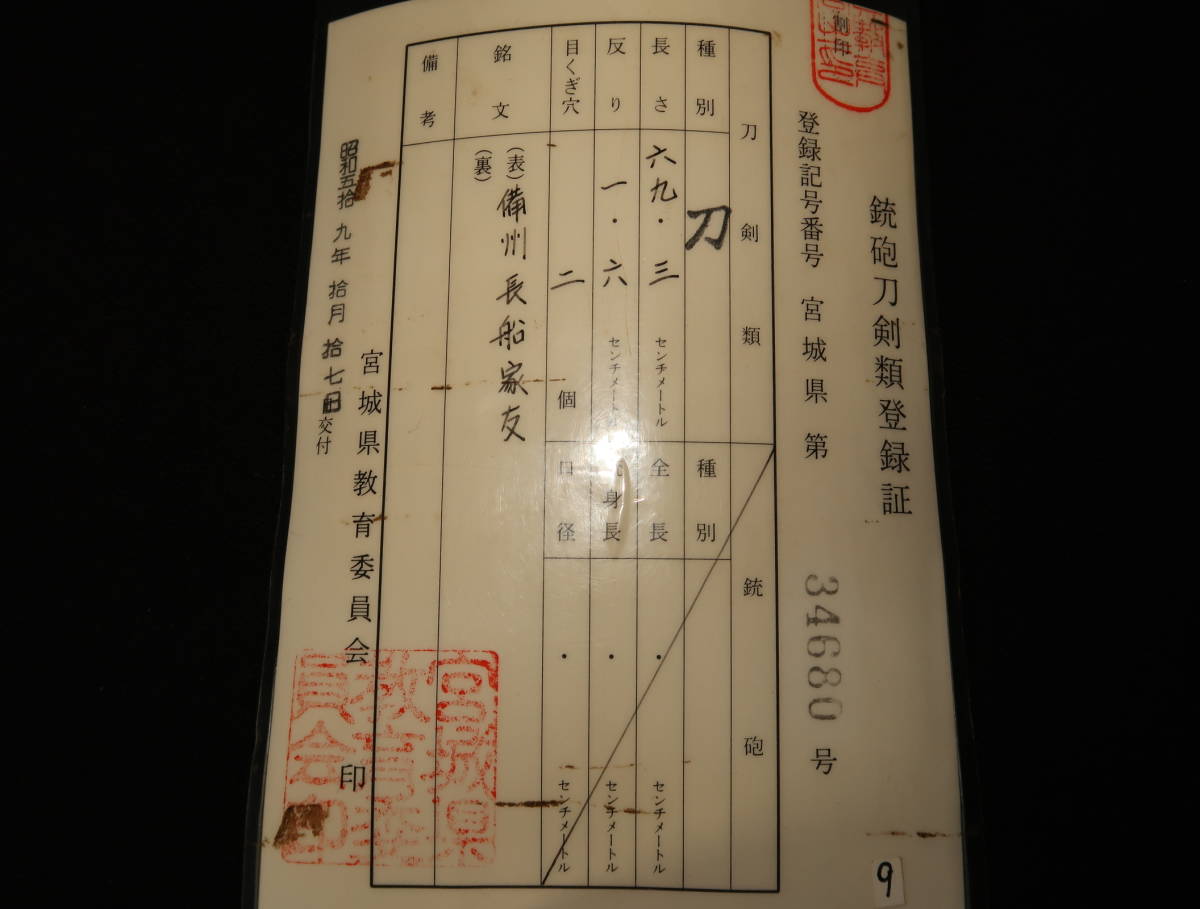 銃砲刀剣類登録証
割印
登録記号番号 宮城県 第 34680 号
刀剣類
種別 刀
長さ 六九・三 センチメートル
反り 一・六 センチメートル
目くぎ穴 二 個
銘文 (表) 備州長船家友
(裏)
備考
銃砲
種別
全長 ・ センチメートル
身長 ・ センチメートル
口径 ・ センチメートル
昭和五拾九年拾月拾七日交付
宮城県教育委員会 印
宮城県教育委員会印
9